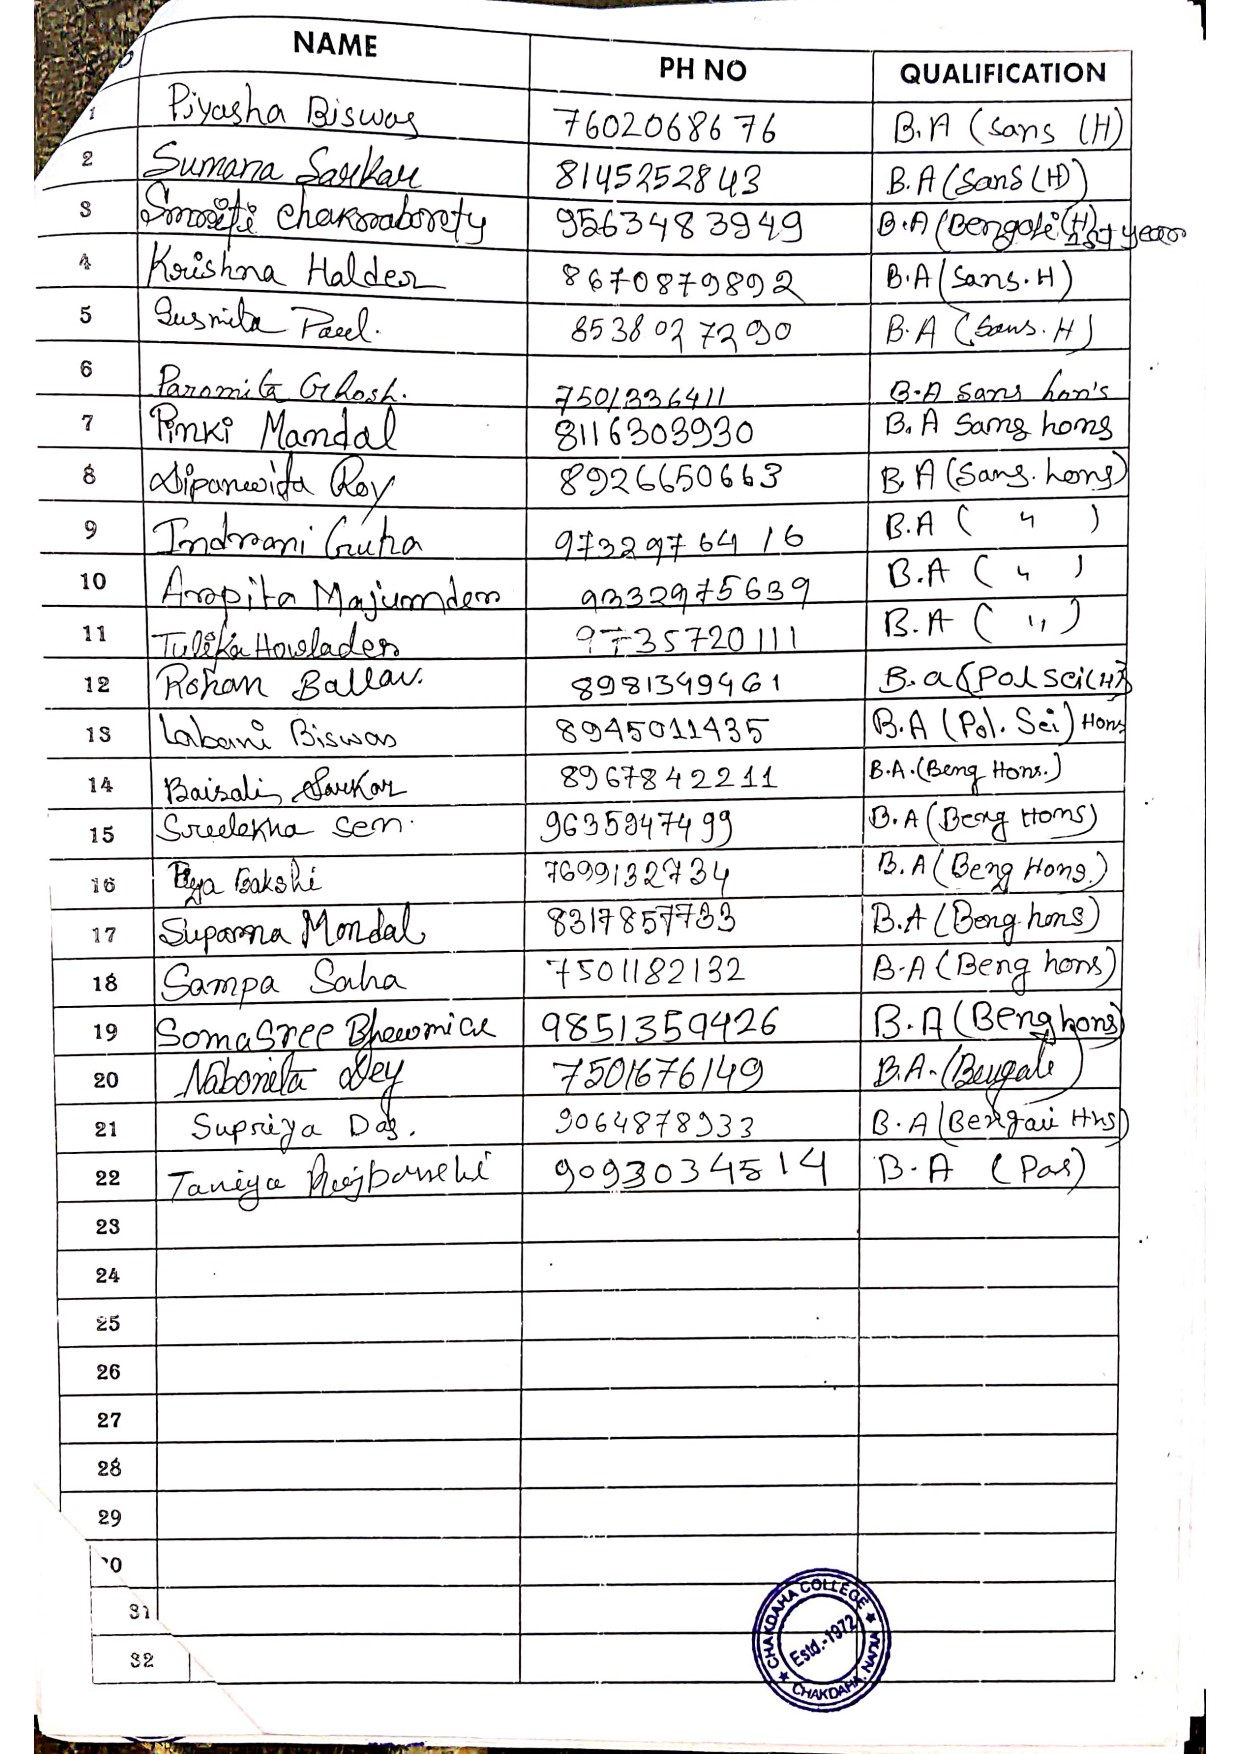 NAME PH NO QUALIFICATION
1 Piyasha Biswas 7602068676 B.A (Sans (H)
2 Sumana Sarkar 8145252843 B.A (Sans (H)
3 Smriti Chakraborty 9563483949 B.A (Bengali (H) 1st year
4 Krishna Halder 8670879892 B.A (Sans. H)
5 Susmita Paul. 8538027290 B.A (Sans. H)
6 Paromita Ghosh. 7501336411 B.A Sans hon's
7 Pinki Mandal 8116303930 B.A Sans hons
8 Dipanwita Roy 8926650663 B.A (Sans. hons)
9 Indrani Guha 9732976416 B.A ( " )
10 Arpita Majumder 9332975639 B.A ( " )
11 Tulika Howlader 9735720111 B.A ( " )
12 Rohan Ballav. 8981349461 B.a (Pol Sci (H)
13 Labani Biswas 8945011435 B.A (Pol. Sci) Hons
14 Baisali Sarkar 8967842211 B.A. (Beng Hons.)
15 Sreelekha Sen. 9635947499 B.A (Beng Hons)
16 Bakshi 7699132734 B.A (Beng Hons.)
17 Suparna Mondal 8317857733 B.A (Beng hons)
18 Sampa Saha 7501182132 B.A (Beng hons)
19 SomaSree Bhowmick 9851359426 B.A (Beng hons)
20 Nabonita Dey 7501676149 B.A. (Bengali)
21 Supriya Das. 9064878933 B.A (Bengali Hns)
22 Taniya Rajbanshi 9093034514 B.A (Pas)
23
24
25
26
27
28
29
30
31
32
CHAKDAHA COLLEGE
Estd.-1972
CHAKDAHA, NADIA